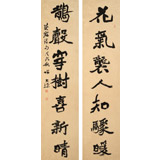 花氣襲人知驟暖
鵲聲穿樹喜新晴